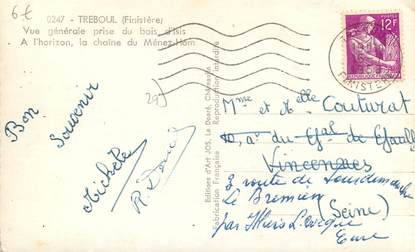 6€
0247 - TREBOUL (Finistère)
Vue générale prise du bois d'Isis
A l'horizon, la chaîne du Ménez-Hom
Bon
Souvenir
Michèle
R.
Editions d'Art JOS, Le Doaré, Châteaulin
Fabrication Française Reproduction interdite
12F
FINISTERE
Mme et Mlle Couturat
du Gal de Gaulle
Vincennes
3 route de
(Seine)
par
Eure